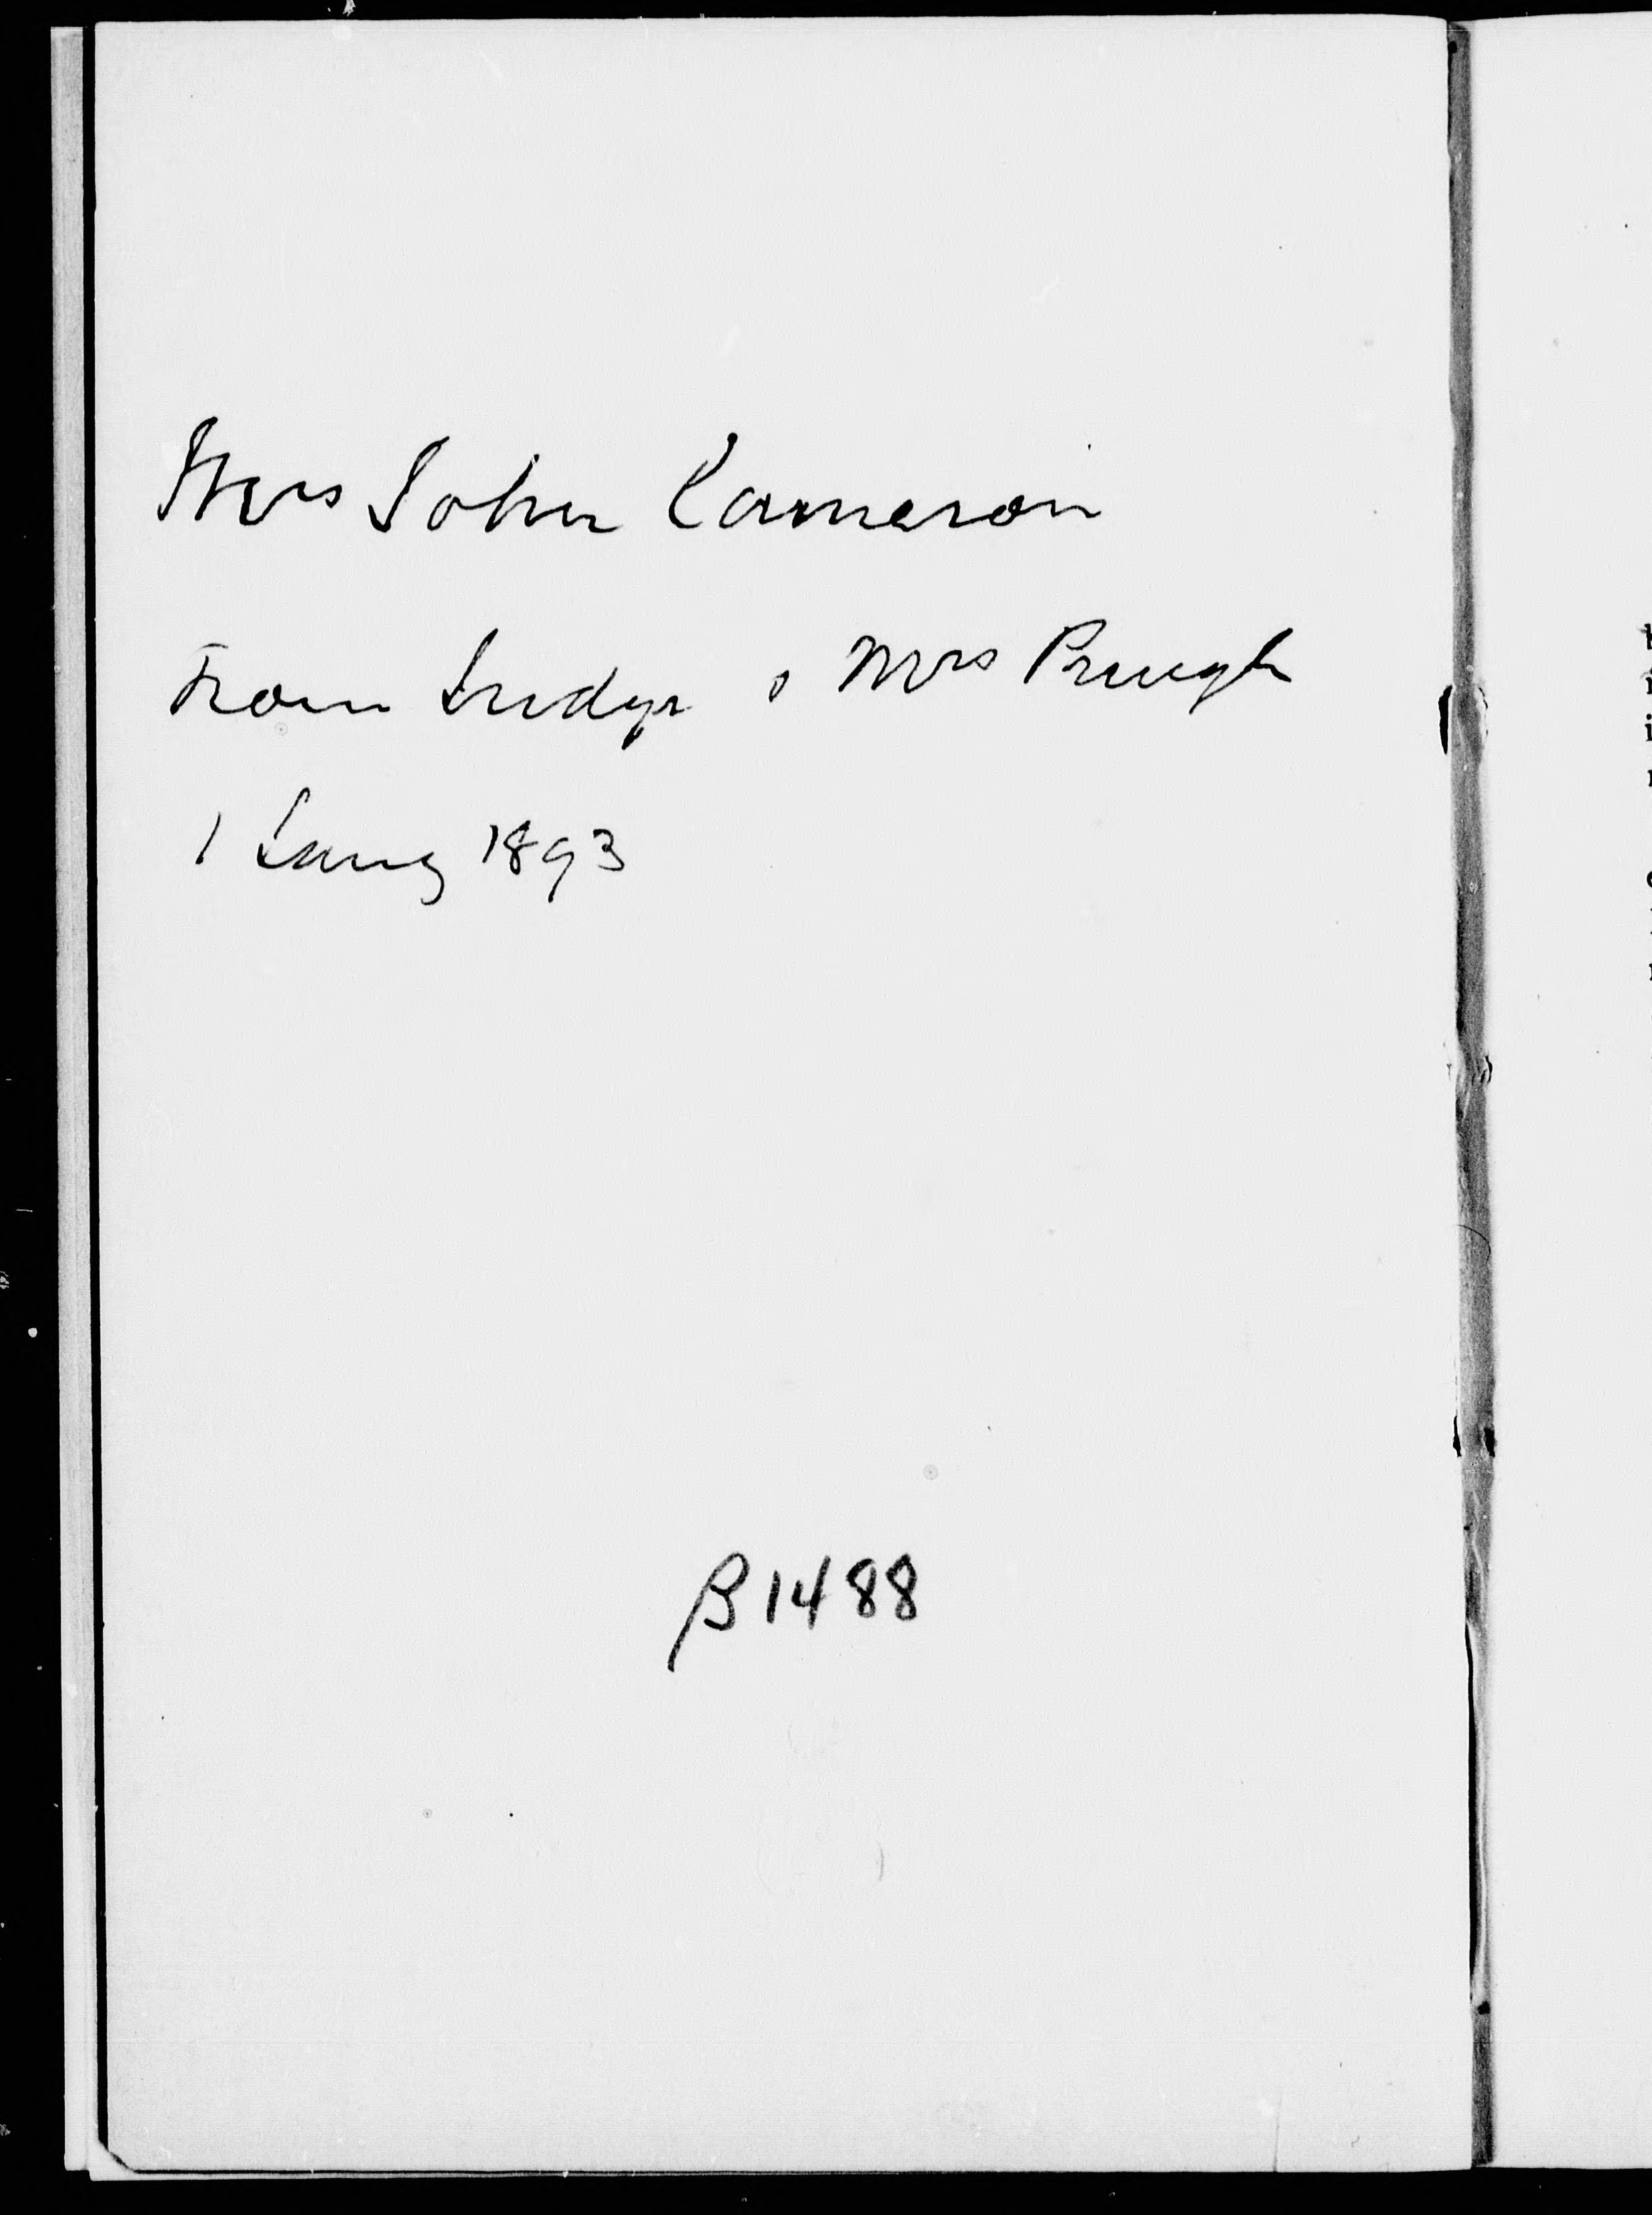 Mrs John Cameron
From Judge & Mrs Prugh
1 Jany 1893
B1488